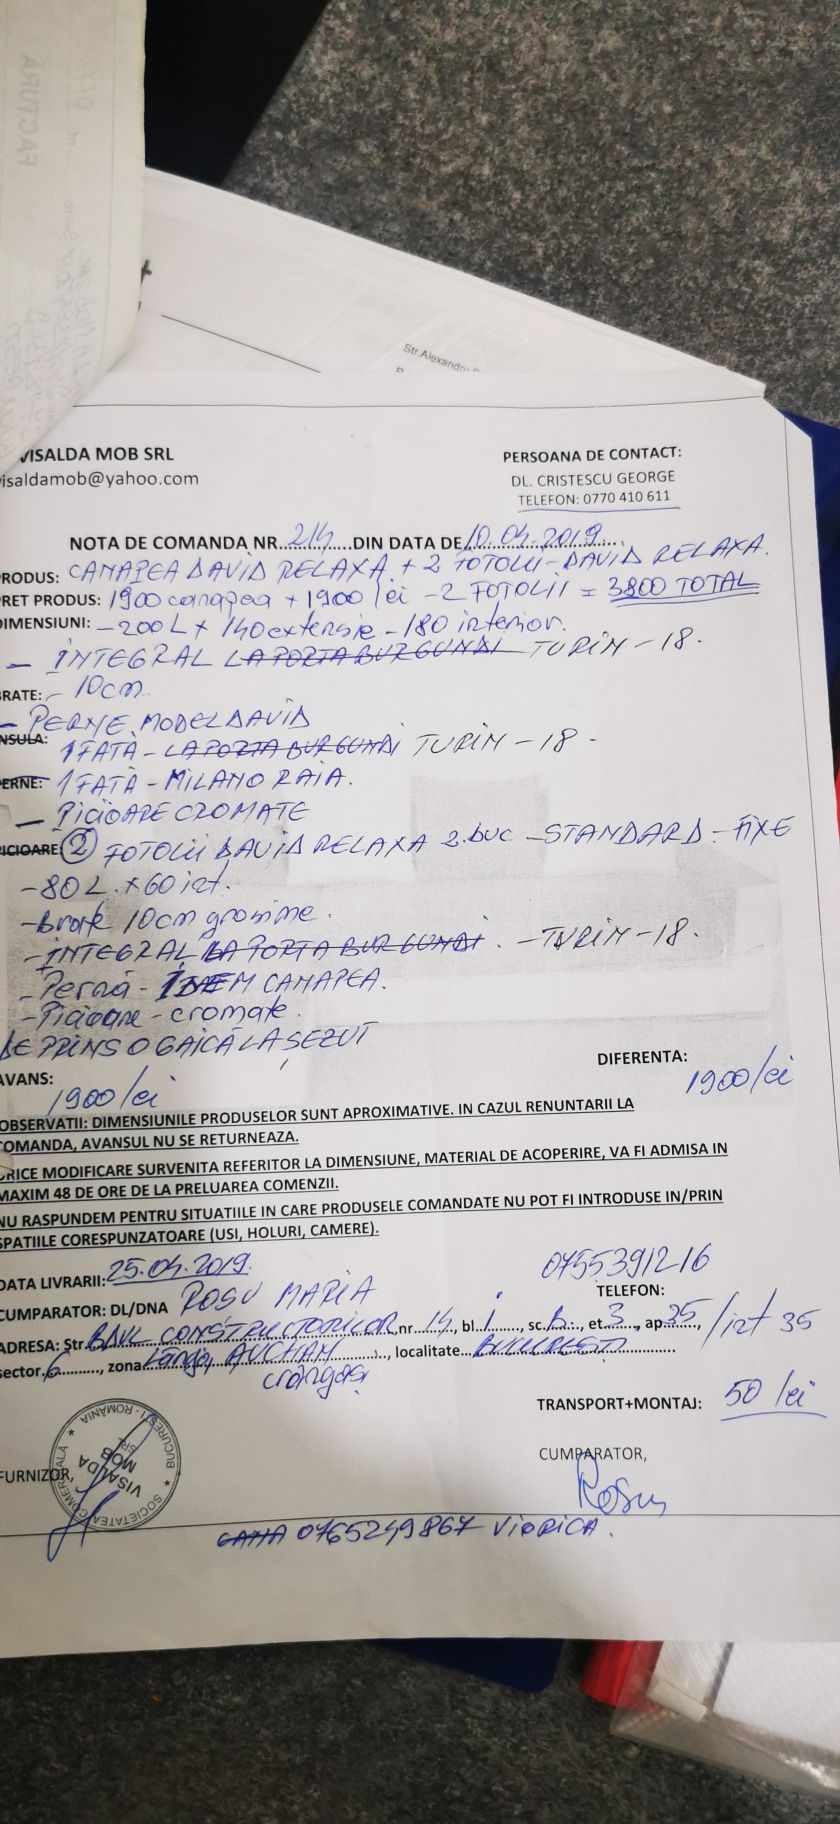 FACTURĂ
Str.Alexandru
VISALDA MOB SRL
PERSOANA DE CONTACT:
isaldamob@yahoo.com
DL. CRISTESCU GEORGE
TELEFON: 0770 410 611
NOTA DE COMANDA NR. 214 DIN DATA DE 10.04.2019
RODUS: CANAPEA DAVID RELAXA + 2 FOTOLII - DAVID RELAXA.
RET PRODUS: 1900 canapea + 1900 lei - 2 FOTOLII = 3800 TOTAL
DIMENSIUNI: - 200 L x 140 extensie - 180 interior.
- INTEGRAL LA PORTA BURGUNDI TURIN - 18.
RATE: - 10cm.
- PERNE MODEL DAVID
NSULA: 1 FATĂ - LA PORTA BURGUNDI TURIN - 18 -
ERNE: 1 FATĂ - MILANO RAIA.
- PICIOARE CROMATE
ICIOARE: 2 FOTOLII DAVID RELAXA 2.buc - STANDARD - FIXE
- 80 L. x 60 int.
- Brate 10cm grosime.
- INTEGRAL LA PORTA BURGUNDI. - TURIN - 18.
- Pernă - IDEM CANAPEA.
- Picioare - cromate.
DE PRINS O GAICĂ LA ȘEZUT
AVANS: 1900 lei
DIFERENTA: 1900 lei
OBSERVATII: DIMENSIUNILE PRODUSELOR SUNT APROXIMATIVE. IN CAZUL RENUNTARII LA
COMANDA, AVANSUL NU SE RETURNEAZA.
ORICE MODIFICARE SURVENITA REFERITOR LA DIMENSIUNE, MATERIAL DE ACOPERIRE, VA FI ADMISA IN
MAXIM 48 DE ORE DE LA PRELUAREA COMENZII.
NU RASPUNDEM PENTRU SITUATIILE IN CARE PRODUSELE COMANDATE NU POT FI INTRODUSE IN/PRIN
SPATIILE CORESPUNZATOARE (USI, HOLURI, CAMERE).
DATA LIVRARII: 25.04.2019.
0755391216
TELEFON:
CUMPARATOR: DL/DNA ROSU MARIA
ADRESA: Str. BDUL CONSTRUCTORILOR nr 14, bl i, sc. B., et 3, ap 35, / int 35
sector 6, zona Lângă AUCHAN, localitate BUCURESTI
crângasi
TRANSPORT+MONTAJ: 50 lei
FURNIZOR,
CUMPARATOR,
Rosu
SOCIETATEA COMERCIALĂ ★ BUCURESTI - ROMÂNIA ★
VISALDA
MOB
SRL
0765249867 VIORICA.